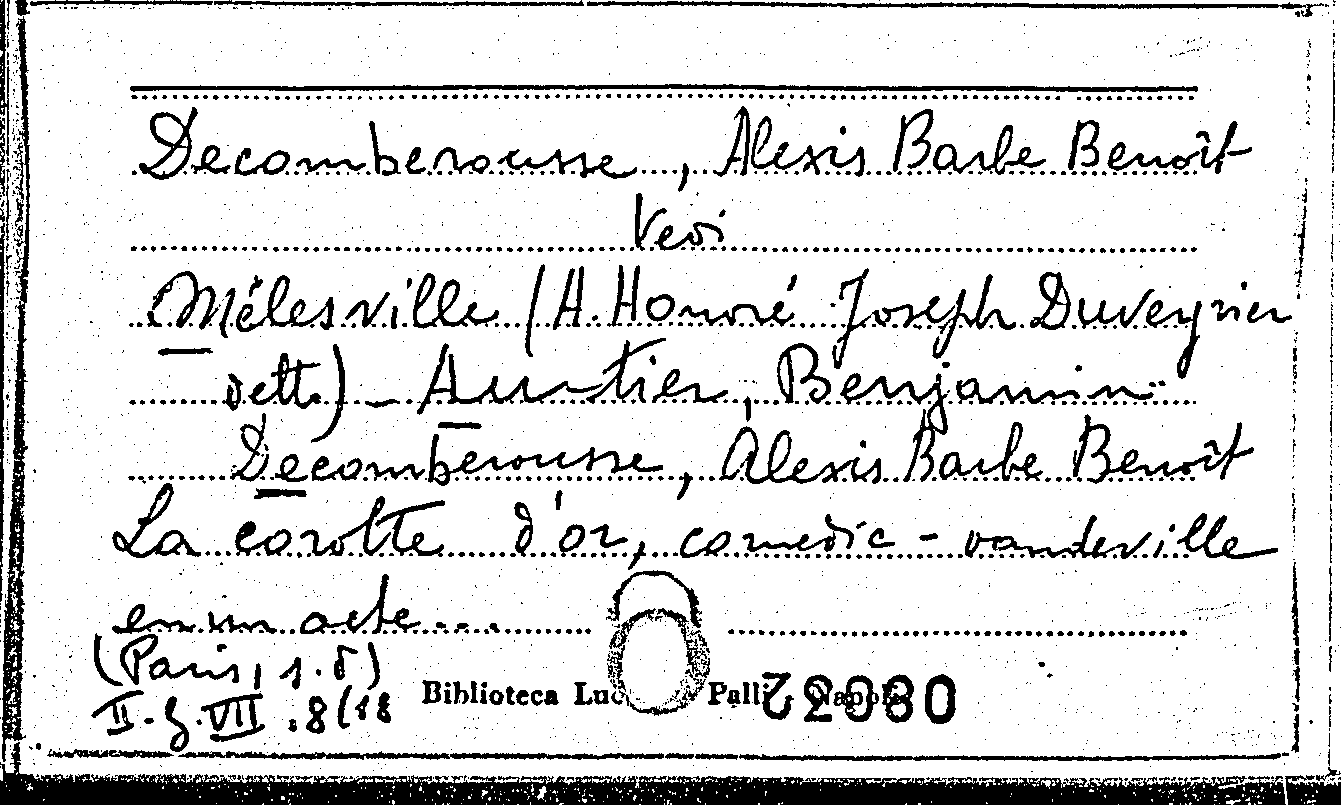 Decomberousse, Alexis Barbe Benoît
Vedi
Mélesville (A. Honoré Joseph Duveyrier
detto) - Autier, Benjamin
Decomberousse, Alexis Barbe Benoît
La carotte d'or, comedie - vaudeville
en un acte...
(Paris, s.d)
II.G.VII.8(18
Biblioteca Palli Napoli